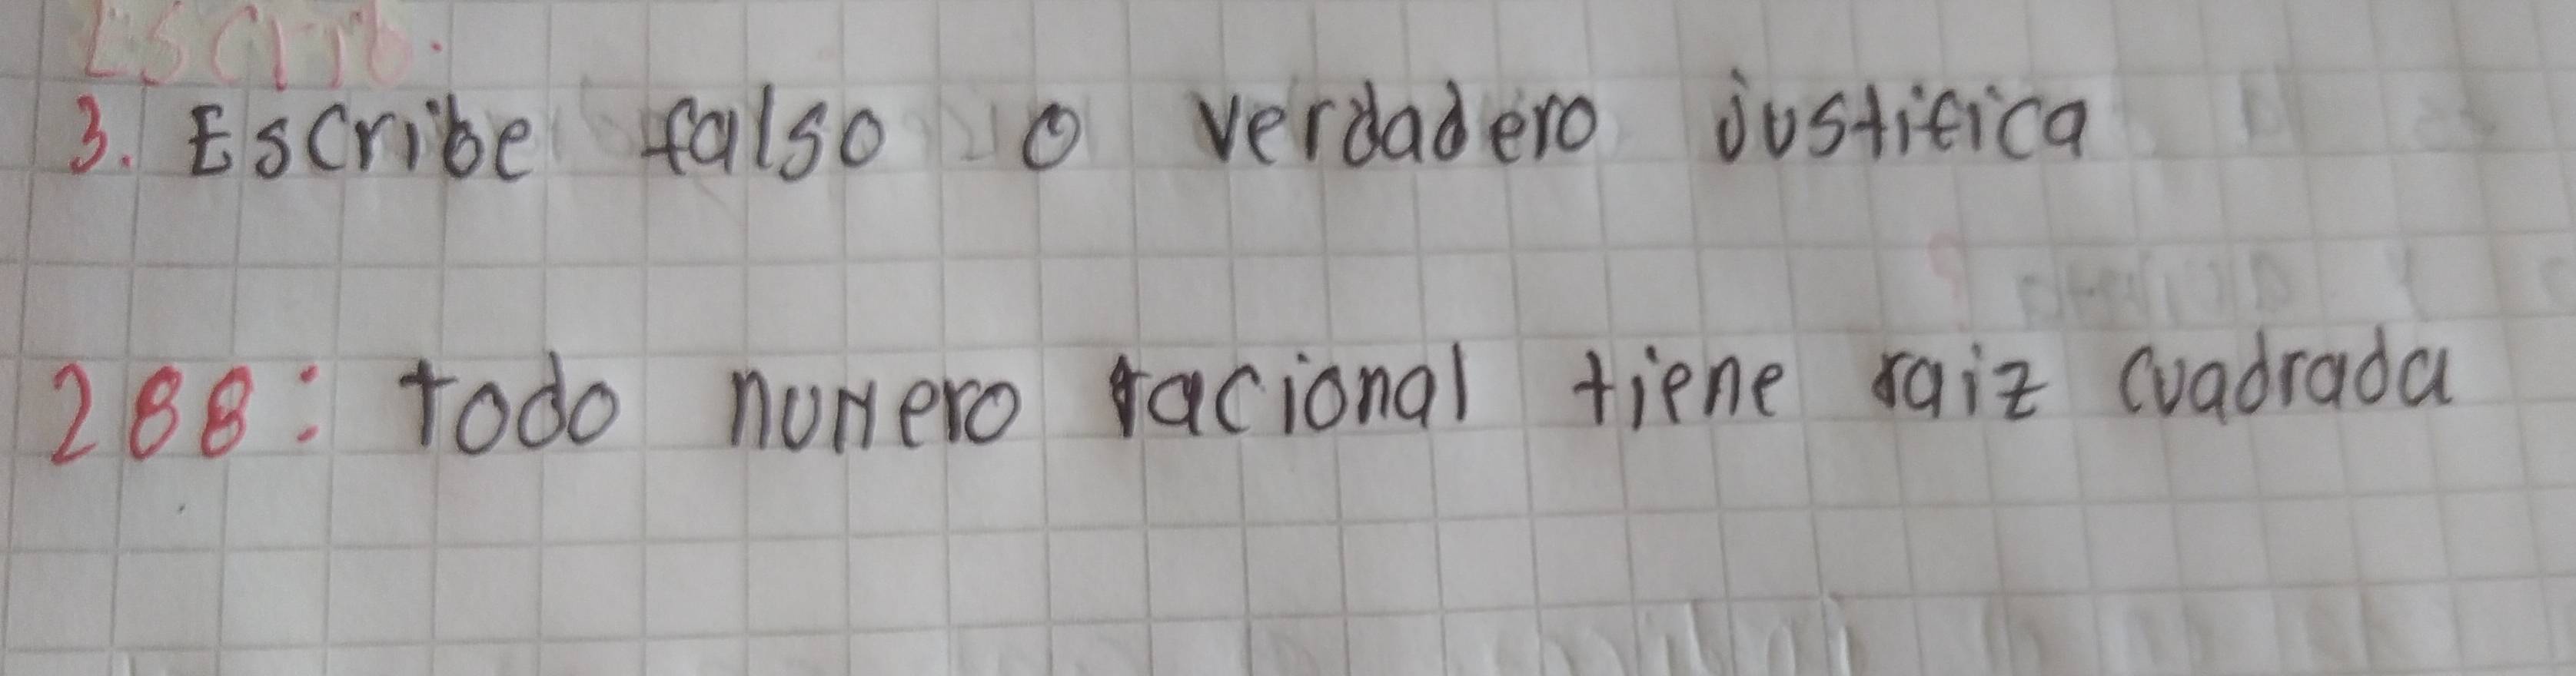 Escrib.
3. Escribe falso o verdadero justifica
288: todo numero racional tiene raiz cuadrada